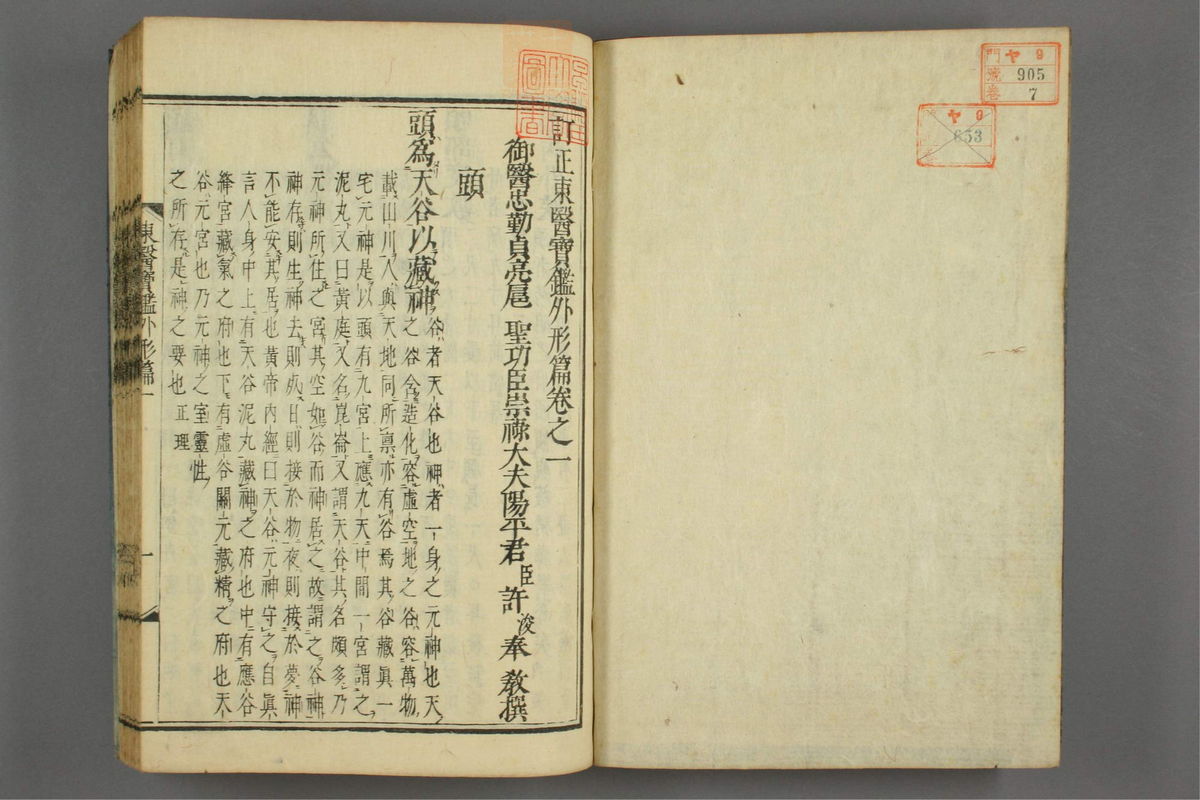 門 ヤ 9
號 905
卷 7
ヤ 9
653
訂正東醫寶鑑外形篇卷之一
御醫忠勤貞亮扈 聖功臣崇祿大夫陽平君臣許浚奉 教撰
頭
頭爲天谷以藏神
谷者天谷也神者一身之元神也天
之谷含造化容虛空地之谷容萬物
載山川人與天地同所稟亦有谷焉其谷藏眞一
宅元神是以頭有九宮上應九天中間一宮謂之
泥丸又曰黃庭又名崑崙又謂天谷其名頗多乃
元神所住之宮其空如谷而神居之故謂之谷神
神存則生神去則死日則接於物夜則接於夢神
不能安其居也黃帝內經曰天谷元神守之自眞
言人身中上有天谷泥丸藏神之府也中有應谷
絳宮藏氣之府也下有虛谷關元藏精之府也天
谷元宮也乃元神之室靈性
之所存是神之要也正理
東醫寶鑑外形篇一
一